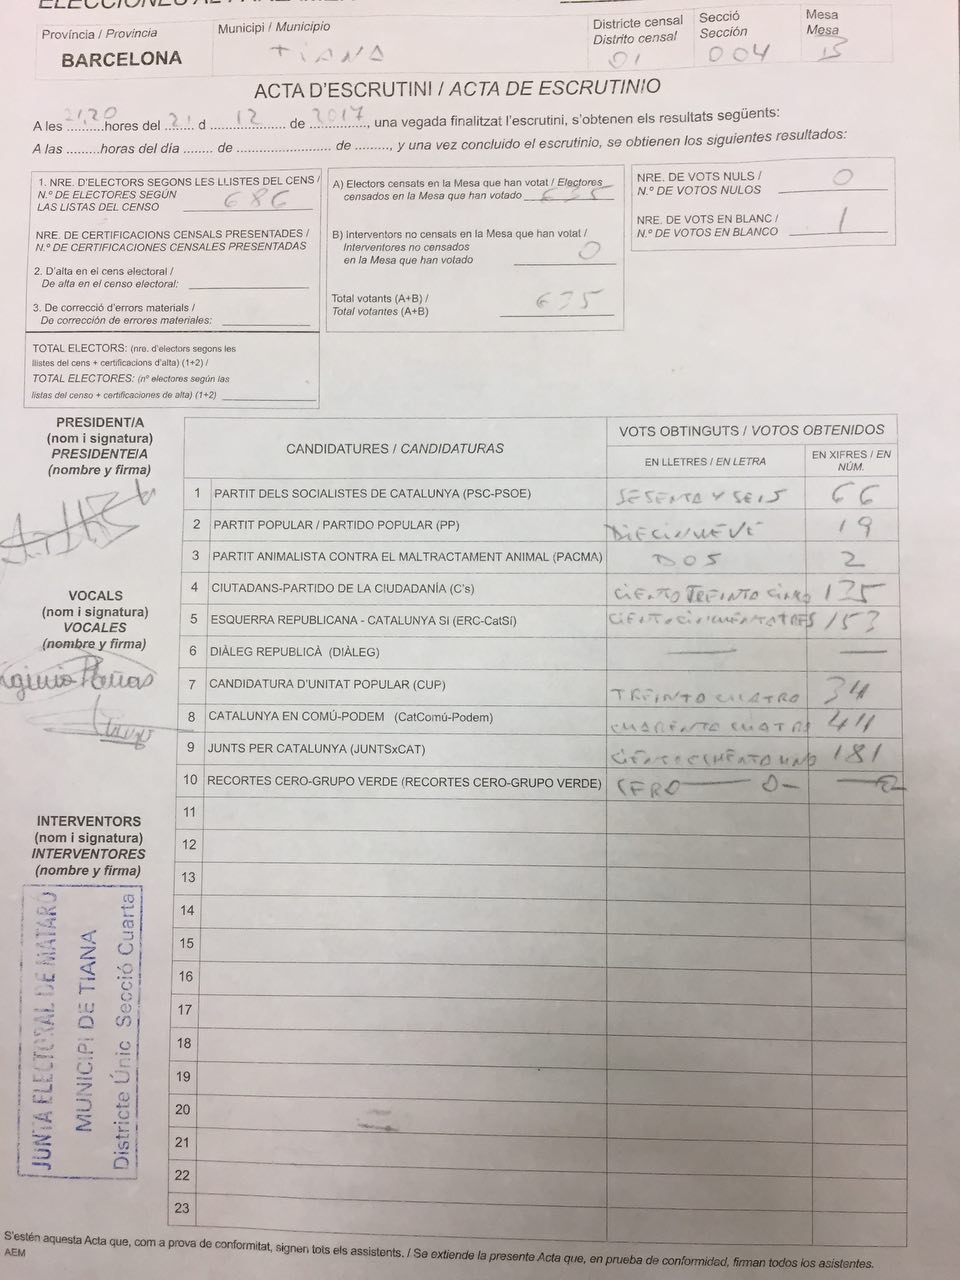 Província / Provincia
BARCELONA
Municipi / Municipio
TIANA
Districte censal
Distrito censal
01
Secció
Sección
004
Mesa
Mesa
B
ACTA D'ESCRUTINI / ACTA DE ESCRUTINIO
A les 21,20 hores del 21 d 12 de 2017, una vegada finalitzat l'escrutini, s'obtenen els resultats següents:
A las .........horas del día ........ de ......................... de ........., y una vez concluido el escrutinio, se obtienen los siguientes resultados:
1. NRE. D'ELECTORS SEGONS LES LLISTES DEL CENS /
N.º DE ELECTORES SEGÚN
LAS LISTAS DEL CENSO 686
NRE. DE CERTIFICACIONS CENSALS PRESENTADES /
N.º DE CERTIFICACIONES CENSALES PRESENTADAS
2. D'alta en el cens electoral /
De alta en el censo electoral:
3. De correcció d'errors materials /
De corrección de errores materiales:
TOTAL ELECTORS: (nre. d'electors segons les
llistes del cens + certificacions d'alta) (1+2) /
TOTAL ELECTORES: (nº electores según las
listas del censo + certificaciones de alta) (1+2)
A) Electors censats en la Mesa que han votat / Electores
censados en la Mesa que han votado 635
B) Interventors no censats en la Mesa que han votat /
Interventores no censados
en la Mesa que han votado 0
Total votants (A+B) /
Total votantes (A+B) 635
NRE. DE VOTS NULS /
N.º DE VOTOS NULOS 0
NRE. DE VOTS EN BLANC /
N.º DE VOTOS EN BLANCO 1
PRESIDENT/A
(nom i signatura)
PRESIDENTE/A
(nombre y firma)
VOCALS
(nom i signatura)
VOCALES
(nombre y firma)
INTERVENTORS
(nom i signatura)
INTERVENTORES
(nombre y firma)
JUNTA ELECTORAL DE MATARÓ
MUNICIPI DE TIANA
Districte Únic Secció Cuarta
CANDIDATURES / CANDIDATURAS
VOTS OBTINGUTS / VOTOS OBTENIDOS
EN LLETRES / EN LETRA
EN XIFRES / EN
NÚM.
1 PARTIT DELS SOCIALISTES DE CATALUNYA (PSC-PSOE) SESENTA Y SEIS 66
2 PARTIT POPULAR / PARTIDO POPULAR (PP) DIECINUEVE 19
3 PARTIT ANIMALISTA CONTRA EL MALTRACTAMENT ANIMAL (PACMA) DOS 2
4 CIUTADANS-PARTIDO DE LA CIUDADANÍA (C's) CIENTO TREINTA CINCO 135
5 ESQUERRA REPUBLICANA - CATALUNYA SI (ERC-CatSí) CIENTO CINCUENTA TRES 153
6 DIÀLEG REPUBLICÀ (DIÀLEG) — —
7 CANDIDATURA D'UNITAT POPULAR (CUP) TREINTA CUATRO 34
8 CATALUNYA EN COMÚ-PODEM (CatComú-Podem) CUARENTA CUATRO 44
9 JUNTS PER CATALUNYA (JUNTSxCAT) CIENTO OCHENTA UNO 181
10 RECORTES CERO-GRUPO VERDE (RECORTES CERO-GRUPO VERDE) CERO — 0 — — 0
11
12
13
14
15
16
17
18
19
20
21
22
23
S'estén aquesta Acta que, com a prova de conformitat, signen tots els assistents. / Se extiende la presente Acta que, en prueba de conformidad, firman todos los asistentes.
AEM